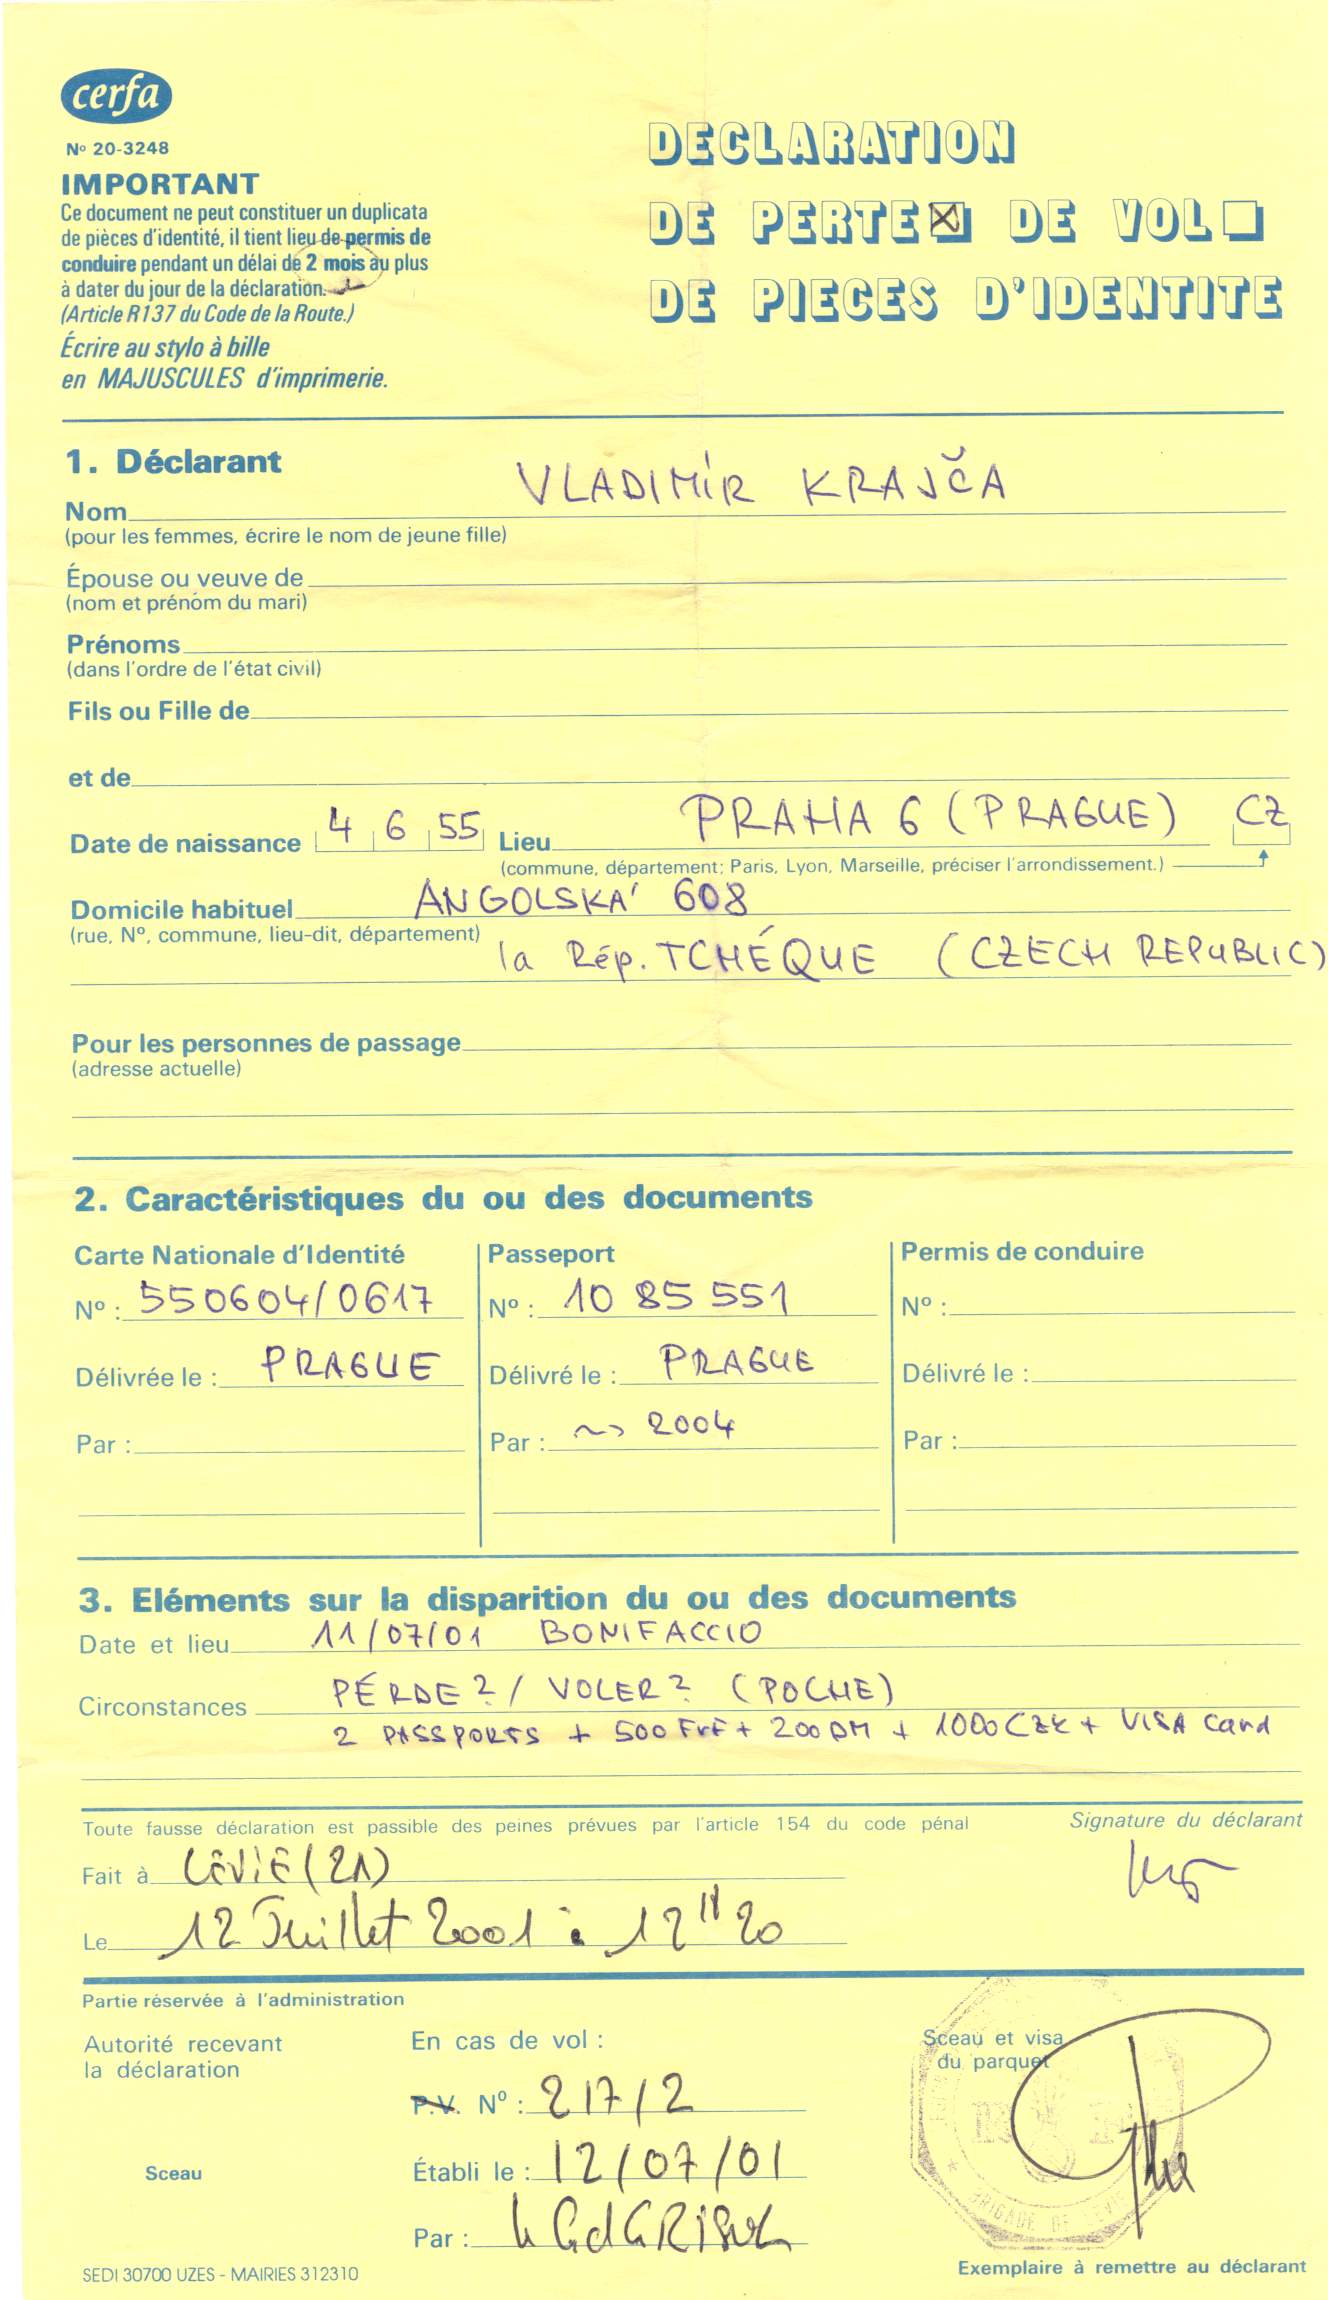 cerfa
Nº 20-3248
IMPORTANT
Ce document ne peut constituer un duplicata
de pièces d'identité, il tient lieu de permis de
conduire pendant un délai de 2 mois au plus
à dater du jour de la déclaration.
(Article R137 du Code de la Route.)
Écrire au stylo à bille
en MAJUSCULES d'imprimerie.
DECLARATION
DE PERTE X DE VOL
DE PIECES D'IDENTITE
1. Déclarant
Nom VLADIMÍR KRAJČA
(pour les femmes, écrire le nom de jeune fille)
Épouse ou veuve de
(nom et prénom du mari)
Prénoms
(dans l'ordre de l'état civil)
Fils ou Fille de
et de
Date de naissance 4 6 55 Lieu PRAHA 6 (PRAGUE) CZ
(commune, département; Paris, Lyon, Marseille, préciser l'arrondissement.)
Domicile habituel ANGOLSKÁ 608
(rue, Nº, commune, lieu-dit, département)
la Rép. TCHÉQUE (CZECH REPUBLIC)
Pour les personnes de passage
(adresse actuelle)
2. Caractéristiques du ou des documents
Carte Nationale d'Identité
Nº : 550604/0617
Délivrée le : PRAGUE
Par :
Passeport
Nº : 10 85 551
Délivré le : PRAGUE
Par : ~> 2004
Permis de conduire
Nº :
Délivré le :
Par :
3. Eléments sur la disparition du ou des documents
Date et lieu 11/07/01 BONIFACCIO
Circonstances PÉRDE? / VOLER? (POCHE)
2 PASSPORTS + 500 FrF + 200 DM + 1000 CZK + VISA card
Toute fausse déclaration est passible des peines prévues par l'article 154 du code pénal
Signature du déclarant
Fait à LÉVIE (2A)
Le 12 Juillet 2001 à 12 H 20
Partie réservée à l'administration
Autorité recevant
la déclaration
Sceau
En cas de vol :
P.V. Nº : 217/2
Établi le : 12/07/01
Par :
Sceau et visa
du parquet
BRIGADE DE LEVIE
Exemplaire à remettre au déclarant
SEDI 30700 UZES - MAIRIES 312310